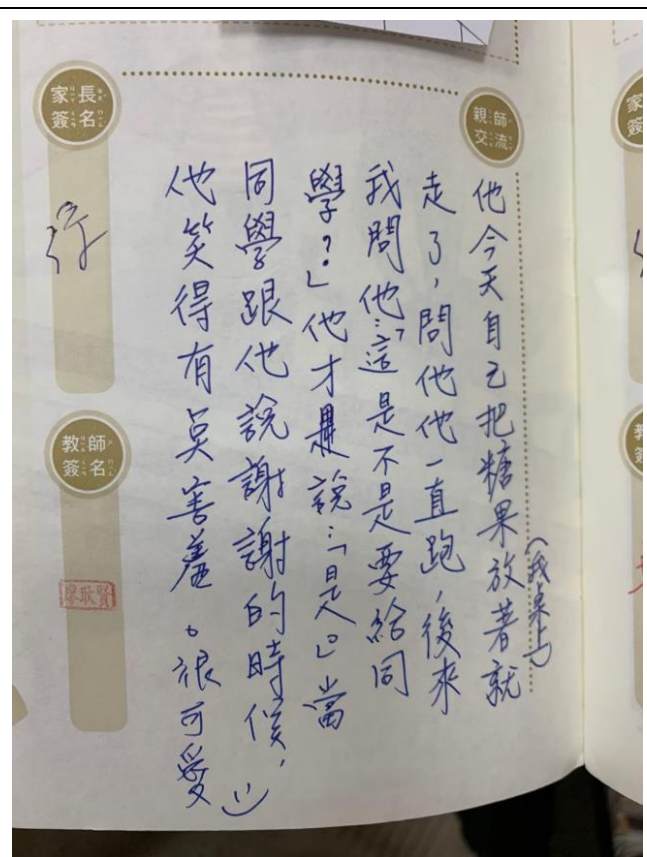 親師交流
他今天自己把糖果放著就
(我桌上)
走了，問他他一直跑，後來
我問他：「這是不是要給同
學？」他才說：「是。」當
同學跟他說謝謝的時候，
他笑得有點害羞。很可愛 :)
家長簽名
教師簽名
廖耿賢